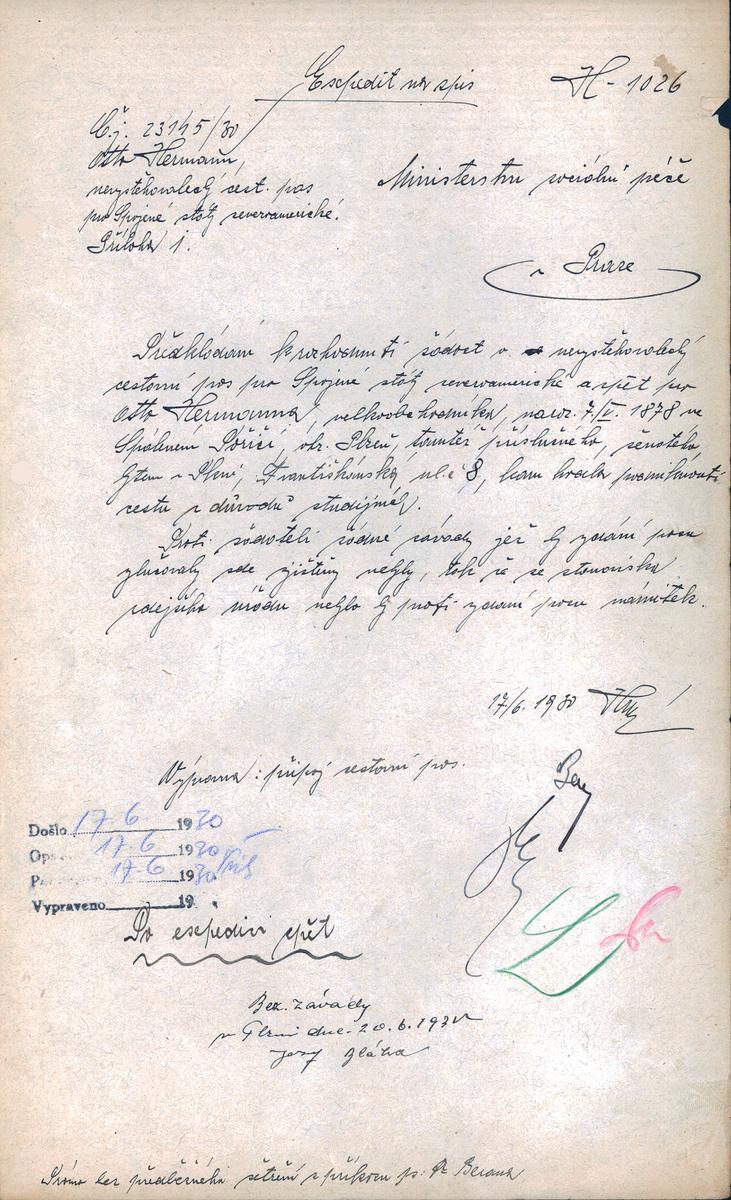 Expedit nov spis
H-1026
Č.j. 23145/30
Otto Hermann,
nevystěhovalecký cest. pas
pro Spojené státy severoamerické.
Příloha 1.
Ministerstvu sociální péče
v Praze
Předkládám k rozhodnutí žádost o nevystěhovalecký
cestovní pas pro Spojené státy severoamerické a zpět pro
Otto Hermanna, velkoobchodníka, naroz. 7/V. 1878 ve
Spáleném Poříčí, okr. Plzeň, tamtéž příslušného, ženatého,
bytem v Plzni, Františkánská ul. č 8, kam hodlá podniknouti
cestu z důvodů studijních.
Proti žadateli žádné závady jež by vydání pasu
vylučovaly zde zjištěny nebyly, tak že se stanoviska
zdejšího úřadu nebylo by proti vydání pasu námitek.
17/6. 1930
Výprava: připoj cestovní pas.
Došlo 17.6. 1930
17.6 1930
17.6 1930
Vypraveno 19
Po expedici zpět
Bez. závady
v Plzni dne 20.6.1930
Josef Bláha
Přímo bez předběžného šetření z příkazu p. Dr Berana